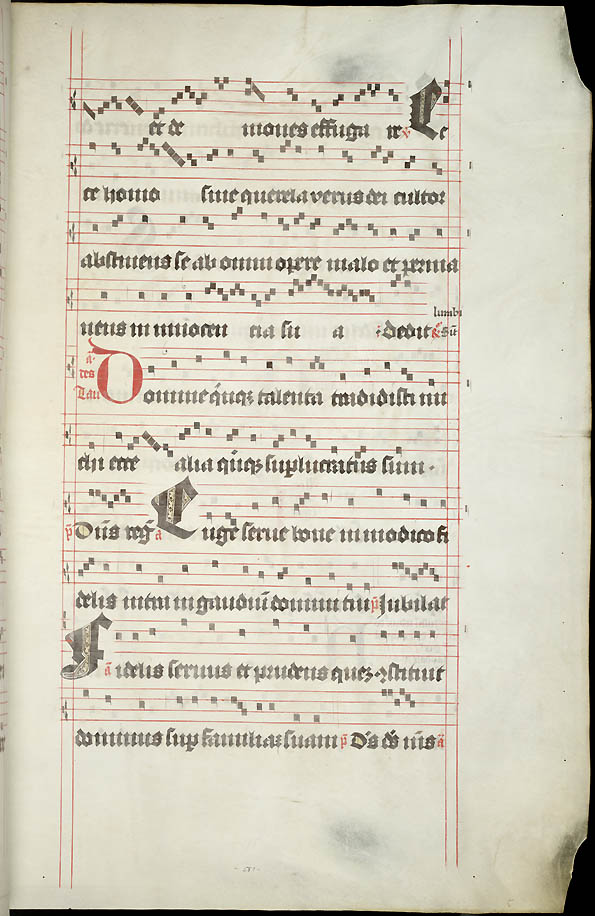 et de mones effuga re ℟ E
cce homo sine querela verus dei cultor
abstinens se ab omni opere malo et perma
nens in innocen cia su a
dedit
lumbi
ã
tes
Lau
Domine quinqz talenta tradidisti mi
chi ecce alia quinqz suplucratus sum ·
p Dñs reg̃ a Euge serue bone in modico fi
delis intra in gaudiũ domini tui p Jubilat
a Fidelis seruus et prudens quez ꝯstituit
dominus sup familiaz suam p Ds ds ms a